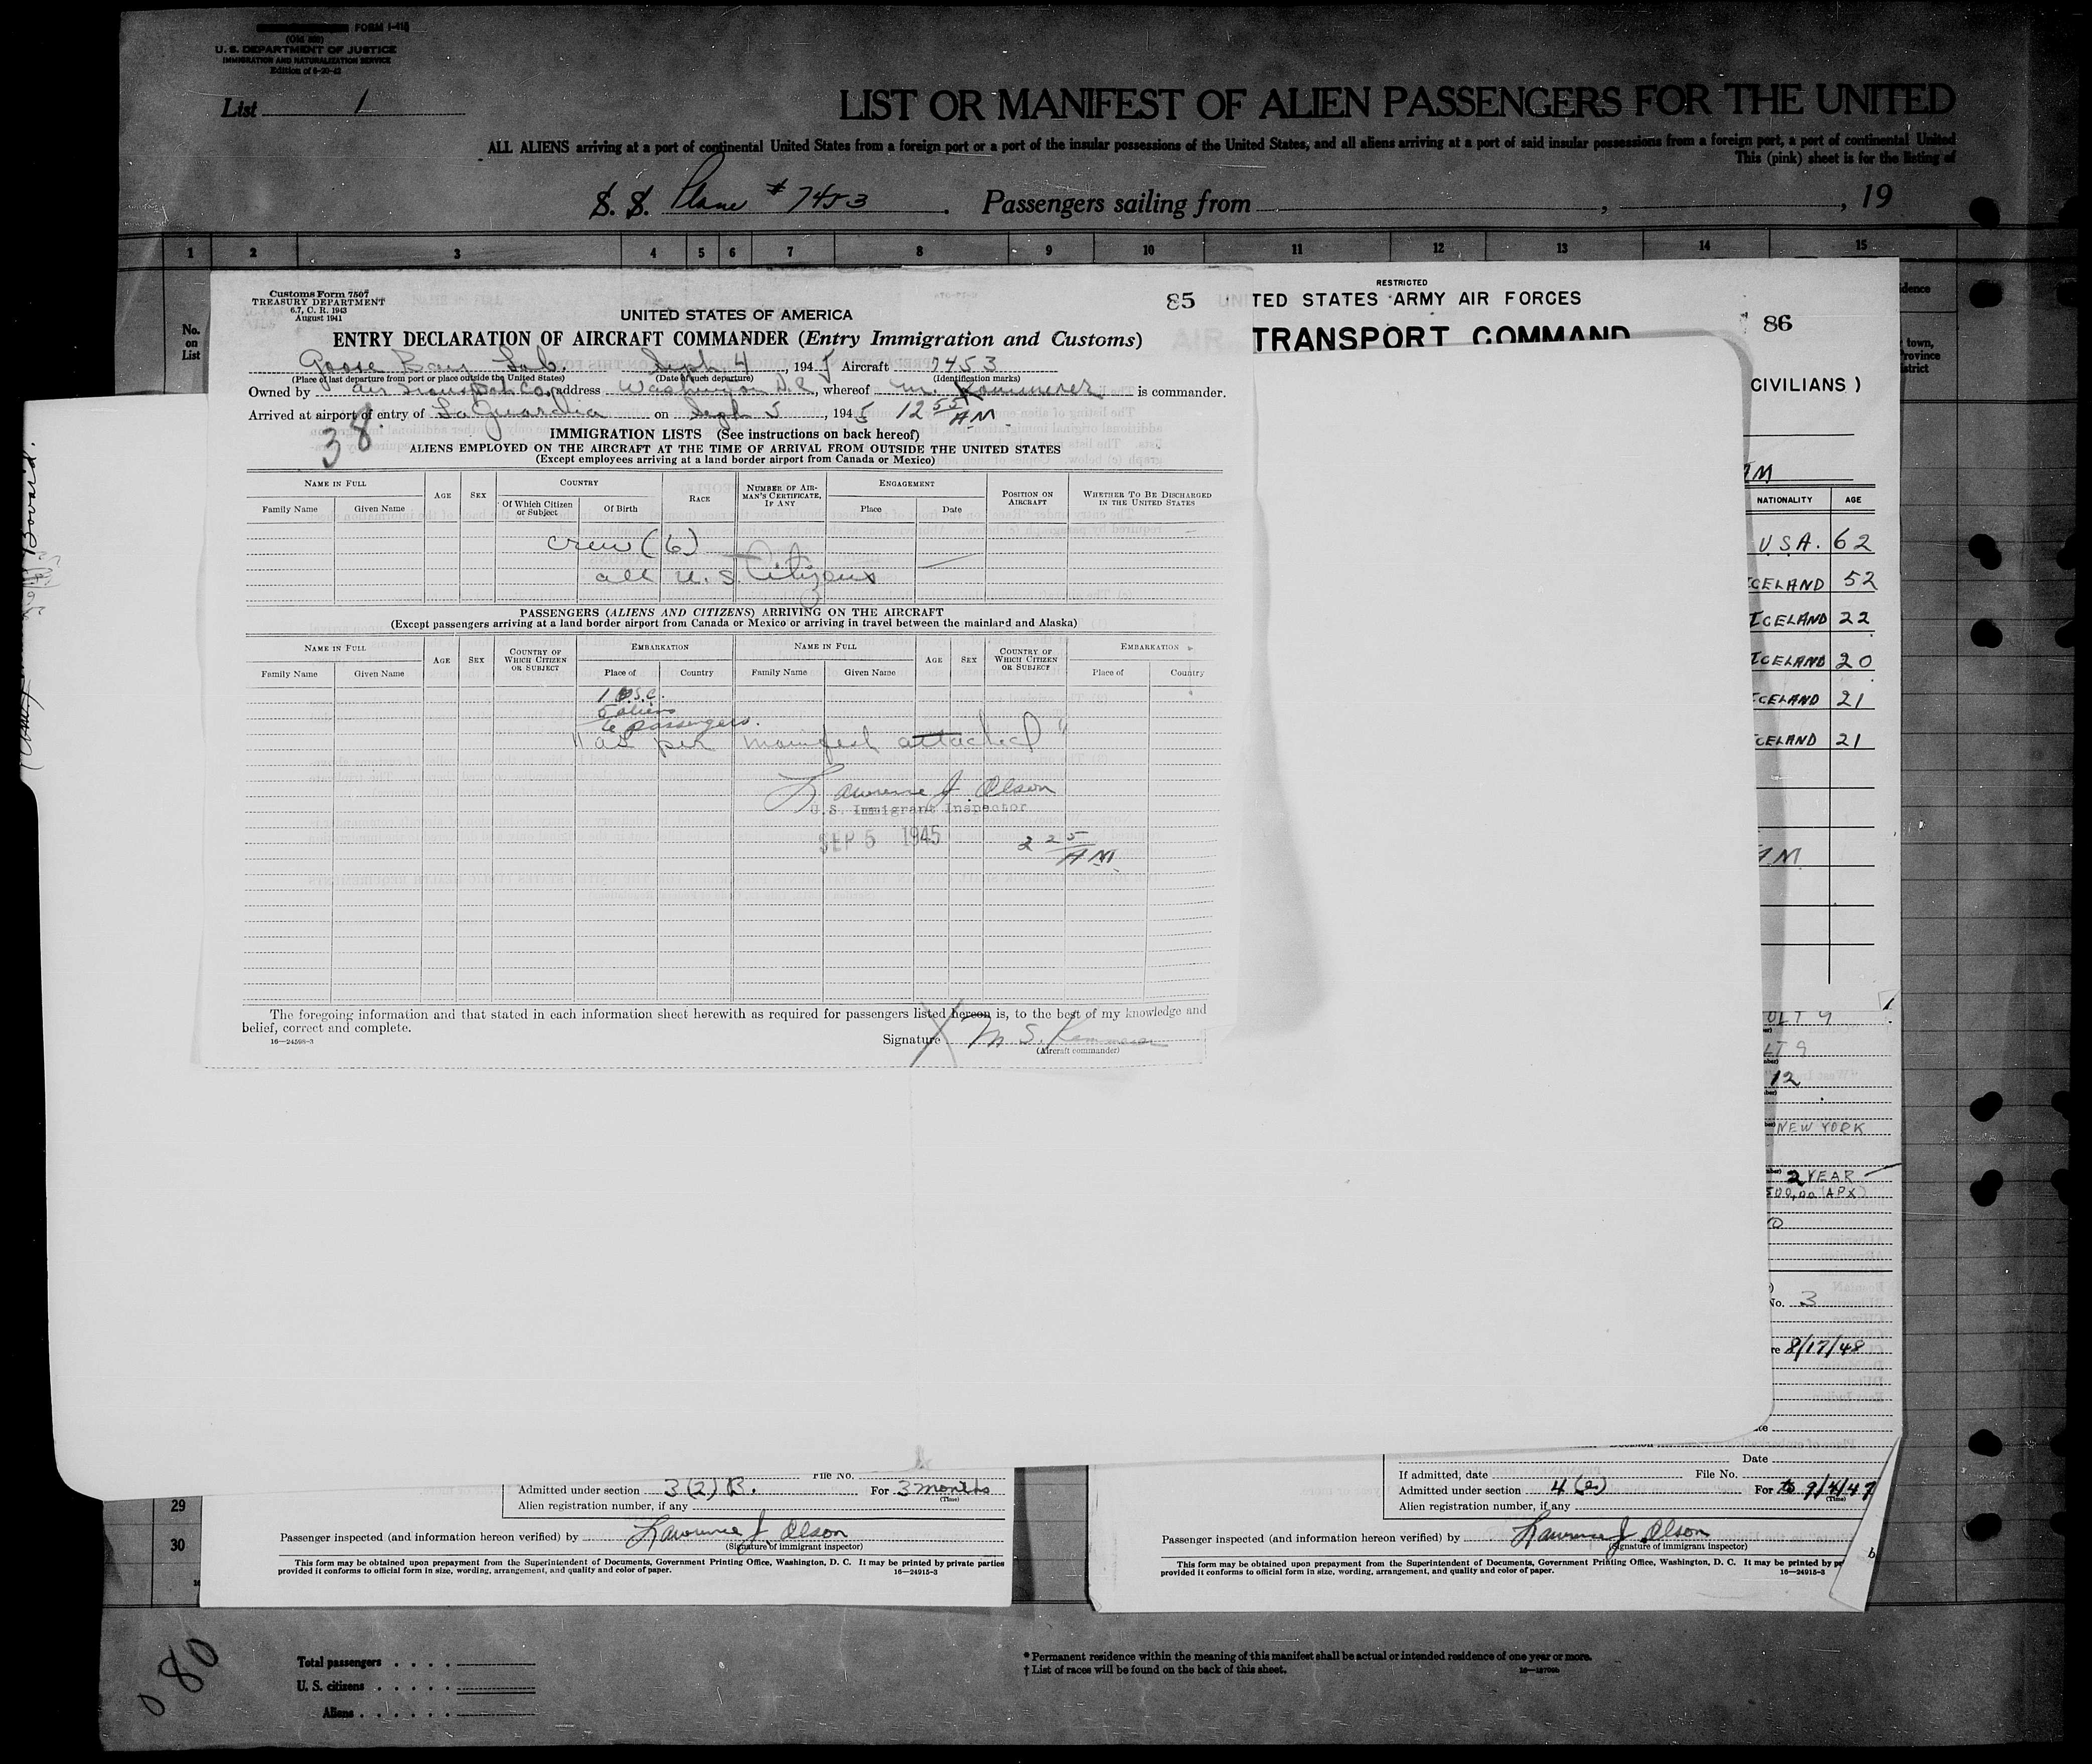 FORM I-415
(Old 500)
U. S. DEPARTMENT OF JUSTICE
IMMIGRATION AND NATURALIZATION SERVICE
List 1
LIST OR MANIFEST OF ALIEN PASSENGERS FOR THE UNITED
ALL ALIENS arriving at a port of continental United States from a foreign port or a port of the insular possessions of the United States, and all aliens arriving at a port of said insular possessions from a foreign port, a port of continental United
This (pink) sheet is for the listing of
S. S. Plane # 7453 . Passengers sailing from , , 19
1 2 3 4 5 6 7 8 9 10 11 12 13 14 15
No. on List
Customs Form 7507
TREASURY DEPARTMENT
6.7, C. R. 1943
August 1941
85
UNITED STATES OF AMERICA
ENTRY DECLARATION OF AIRCRAFT COMMANDER (Entry Immigration and Customs)
Goose Bay Lab. Sept 4, 1945 Aircraft 7453
(Place of last departure from port or place outside the United States) (Date of such departure) (Identification marks)
Owned by Air Transport Co, address Washington D.C., whereof M Kammerer is commander.
Arrived at airport of entry of LaGuardia on Sept 5, 1945 12 55 AM
38
IMMIGRATION LISTS (See instructions on back hereof)
ALIENS EMPLOYED ON THE AIRCRAFT AT THE TIME OF ARRIVAL FROM OUTSIDE THE UNITED STATES
(Except employees arriving at a land border airport from Canada or Mexico)
NAME IN FULL AGE SEX COUNTRY RACE NUMBER OF AIRMAN'S CERTIFICATE, IF ANY ENGAGEMENT POSITION ON AIRCRAFT WHETHER TO BE DISCHARGED IN THE UNITED STATES
Family Name Given Name Of Which Citizen or Subject Of Birth Place Date
crew (6)
all U.S. Citizens
PASSENGERS (ALIENS AND CITIZENS) ARRIVING ON THE AIRCRAFT
(Except passengers arriving at a land border airport from Canada or Mexico or arriving in travel between the mainland and Alaska)
NAME IN FULL AGE SEX COUNTRY OF WHICH CITIZEN OR SUBJECT EMBARKATION NAME IN FULL AGE SEX COUNTRY OF WHICH CITIZEN OR SUBJECT EMBARKATION
Family Name Given Name Place of Country Family Name Given Name Place of Country
1 U.S.C.
5 aliens
6 passengers.
"as per manifest attached"
Lawrence J. Olson
U.S. Immigrant Inspector
SEP 5 1945
2 25 AM
The foregoing information and that stated in each information sheet herewith as required for passengers listed hereon is, to the best of my knowledge and
belief, correct and complete.
16—24598-3
Signature M S. Kammerer
(Aircraft commander)
RESTRICTED
TED STATES ARMY AIR FORCES
TRANSPORT COMMAND
86
CIVILIANS )
NATIONALITY AGE
U.S.A. 62
ICELAND 52
ICELAND 22
ICELAND 20
ICELAND 21
ICELAND 21
12
NEW YORK
2 YEAR
500.00 (APX)
No. 3
8/17/48
29
30
File No.
Admitted under section 3(2) B. For 3 months
(Time)
Alien registration number, if any
Passenger inspected (and information hereon verified) by Lawrence J Olson
(Signature of immigrant inspector)
This form may be obtained upon prepayment from the Superintendent of Documents, Government Printing Office, Washington, D. C. It may be printed by private parties
provided it conforms to official form in size, wording, arrangement, and quality and color of paper. 16—24915-3
Date
If admitted, date File No.
Admitted under section 4 (e) For to 9/4/47
(Time)
Alien registration number, if any
Passenger inspected (and information hereon verified) by Lawrence J Olson
(Signature of immigrant inspector)
This form may be obtained upon prepayment from the Superintendent of Documents, Government Printing Office, Washington, D. C. It may be printed by pr
provided it conforms to official form in size, wording, arrangement, and quality and color of paper. 16—24915-3
080
Total passengers
U. S. citizens
Aliens
* Permanent residence within the meaning of this manifest shall be actual or intended residence of one year or more.
† List of races will be found on the back of this sheet.